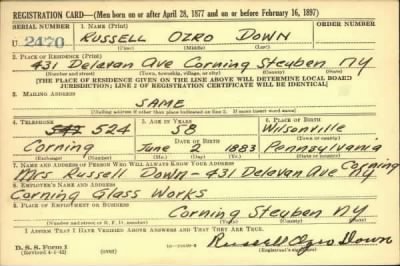 REGISTRATION CARD—(Men born on or after April 28, 1877 and on or before February 16, 1897)
SERIAL NUMBER
1. NAME (Print)
ORDER NUMBER
U 2470
RUSSELL OZRO DOWN
(First) (Middle) (Last)
2. PLACE OF RESIDENCE (Print)
431 Delevan Ave Corning Steuben NY
(Number and street) (Town, township, village, or city) (County) (State)
[THE PLACE OF RESIDENCE GIVEN ON THE LINE ABOVE WILL DETERMINE LOCAL BOARD
JURISDICTION; LINE 2 OF REGISTRATION CERTIFICATE WILL BE IDENTICAL]
3. MAILING ADDRESS
SAME
[Mailing address if other than place indicated on line 2. If same insert word same]
4. TELEPHONE
5. AGE IN YEARS
6. PLACE OF BIRTH
524
58
Wilsonville
DATE OF BIRTH
(Town or county)
Corning
June 2 1883
Pennsylvania
(Exchange) (Number)
(Mo.) (Day) (Yr.)
(State or country)
7. NAME AND ADDRESS OF PERSON WHO WILL ALWAYS KNOW YOUR ADDRESS
Mrs Russell Down - 431 Delevan Ave Corning NY
8. EMPLOYER'S NAME AND ADDRESS
Corning Glass Works
9. PLACE OF EMPLOYMENT OR BUSINESS
Corning Steuben NY
(Number and street or R. F. D. number) (Town) (County) (State)
I AFFIRM THAT I HAVE VERIFIED ABOVE ANSWERS AND THAT THEY ARE TRUE.
D. S. S. Form 1
(Revised 4-1-42)
(over)
Russell Ozro Down
(Registrant's signature)